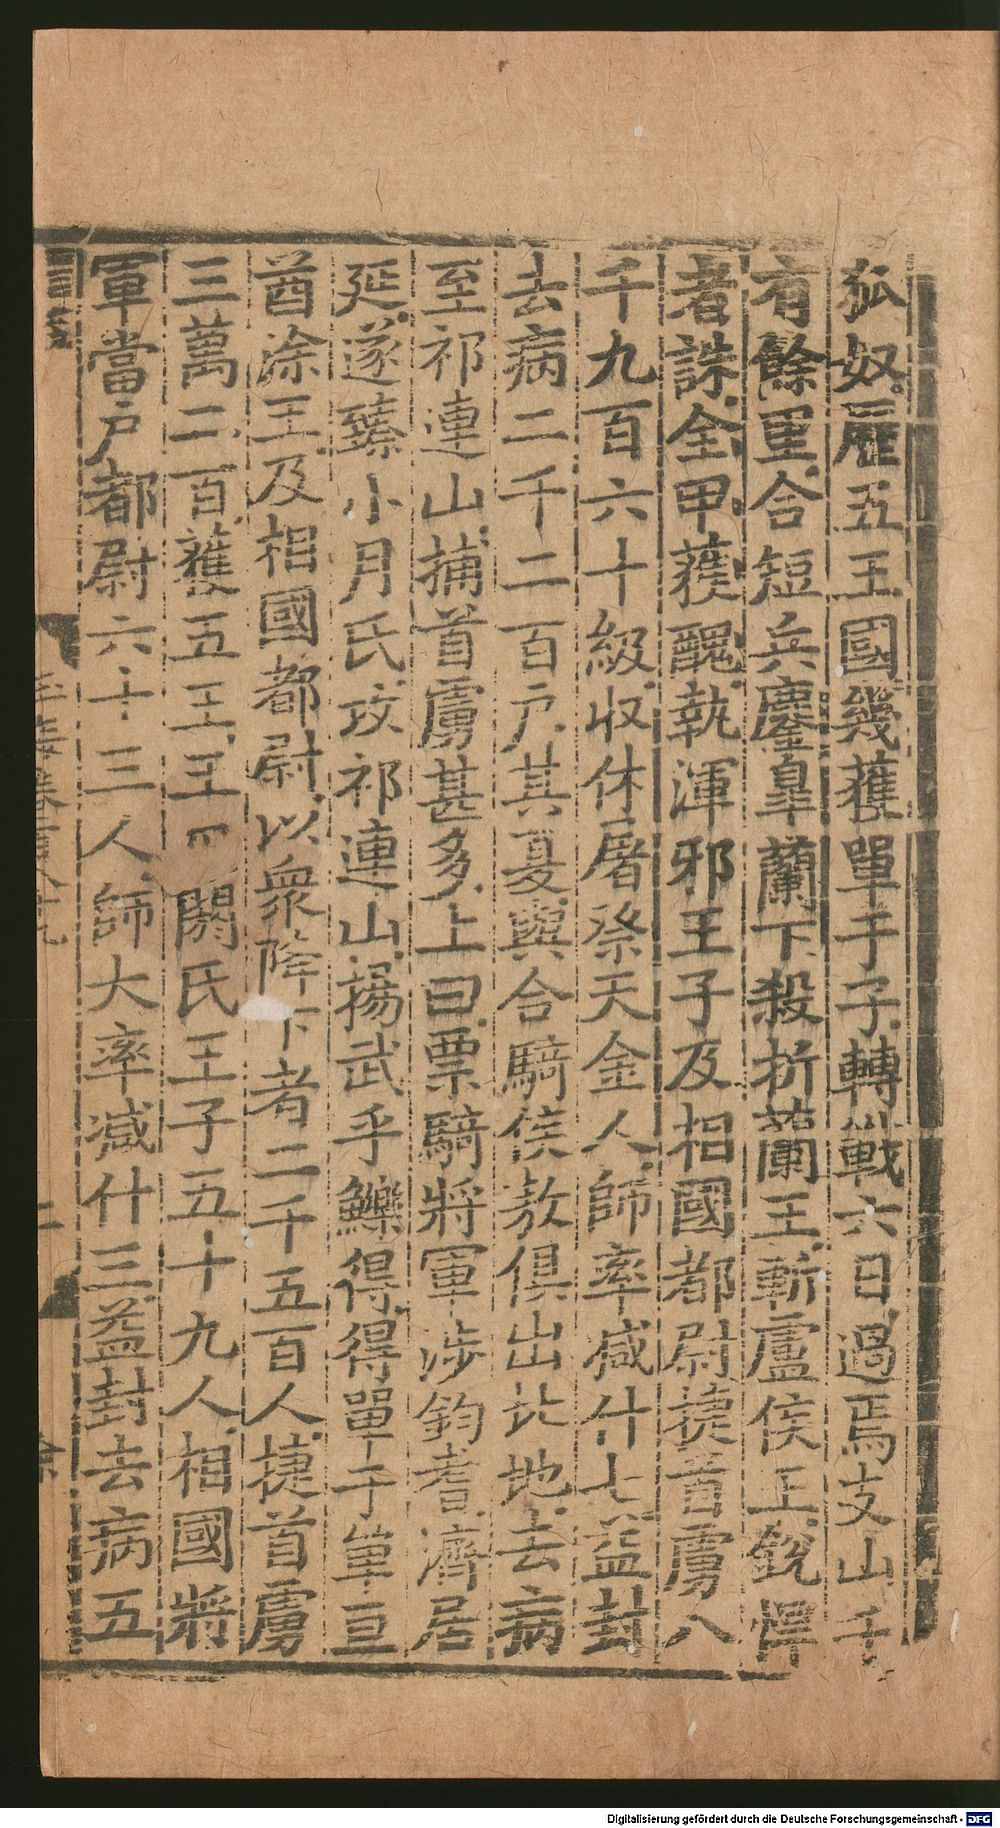 狐奴歷五王國幾獲單于子轉戰六日過焉支山千
有餘里合短兵鏖皐蘭下殺折蘭王斬盧侯王銳悍
者誅全甲獲醜執渾邪王子及相國都尉捷首虜八
千九百六十級收休屠祭天金人師率減什七益封
去病二千二百戶其夏與合騎侯敖俱出北地去病
至祁連山捕首虜甚多上曰票騎將軍涉鈞耆濟居
延遂臻小月氏攻祁連山揚武乎鱳得得單于單亘
酋涂王及相國都尉以衆降下者二千五百人捷首虜
三萬二百獲五王王閼氏王子五十九人相國將
軍當戶都尉六十三人師大率減什三益封去病五
二
Digitalisierung gefördert durch die Deutsche Forschungsgemeinschaft - DFG